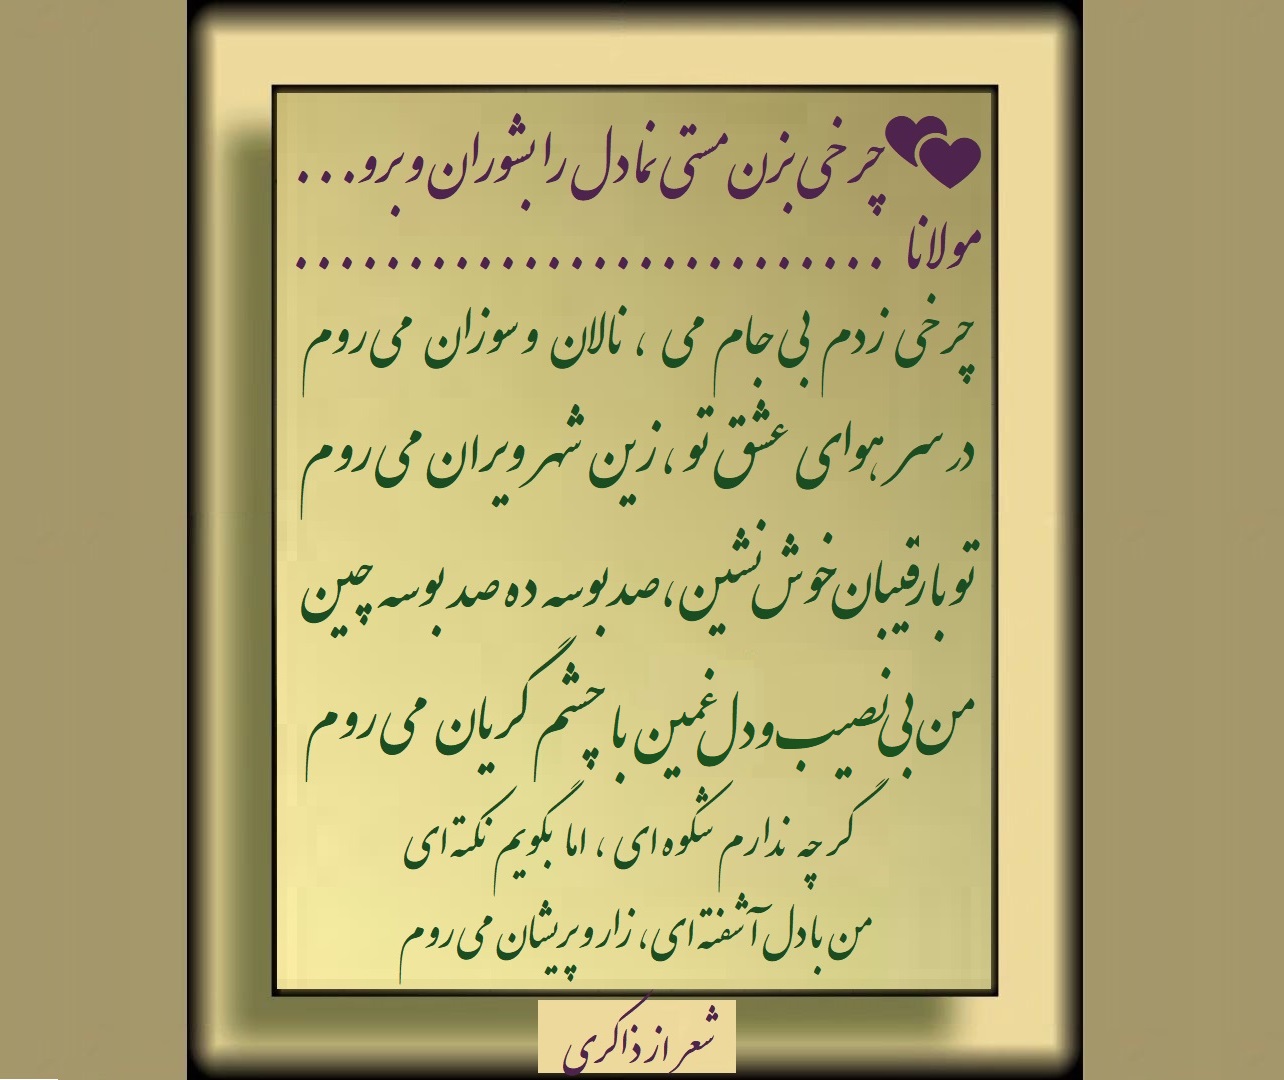 چرخی بزن مستی نما دل را بشوران و برو...
مولانا ..........................
چرخی زدم بی جام می ، نالان و سوزان می روم
در سر هوای عشق تو ، زین شهر ویران می روم
تو با رقیبان خوش نشین ، صد بوسه ده صد بوسه چین
من بی نصیب و دل غمین با چشم گریان می روم
گر چه ندارم شکوه ای ، اما بگویم نکته ای
من با دل آشفته ای ، زار و پریشان می روم
شعر از ذاکری